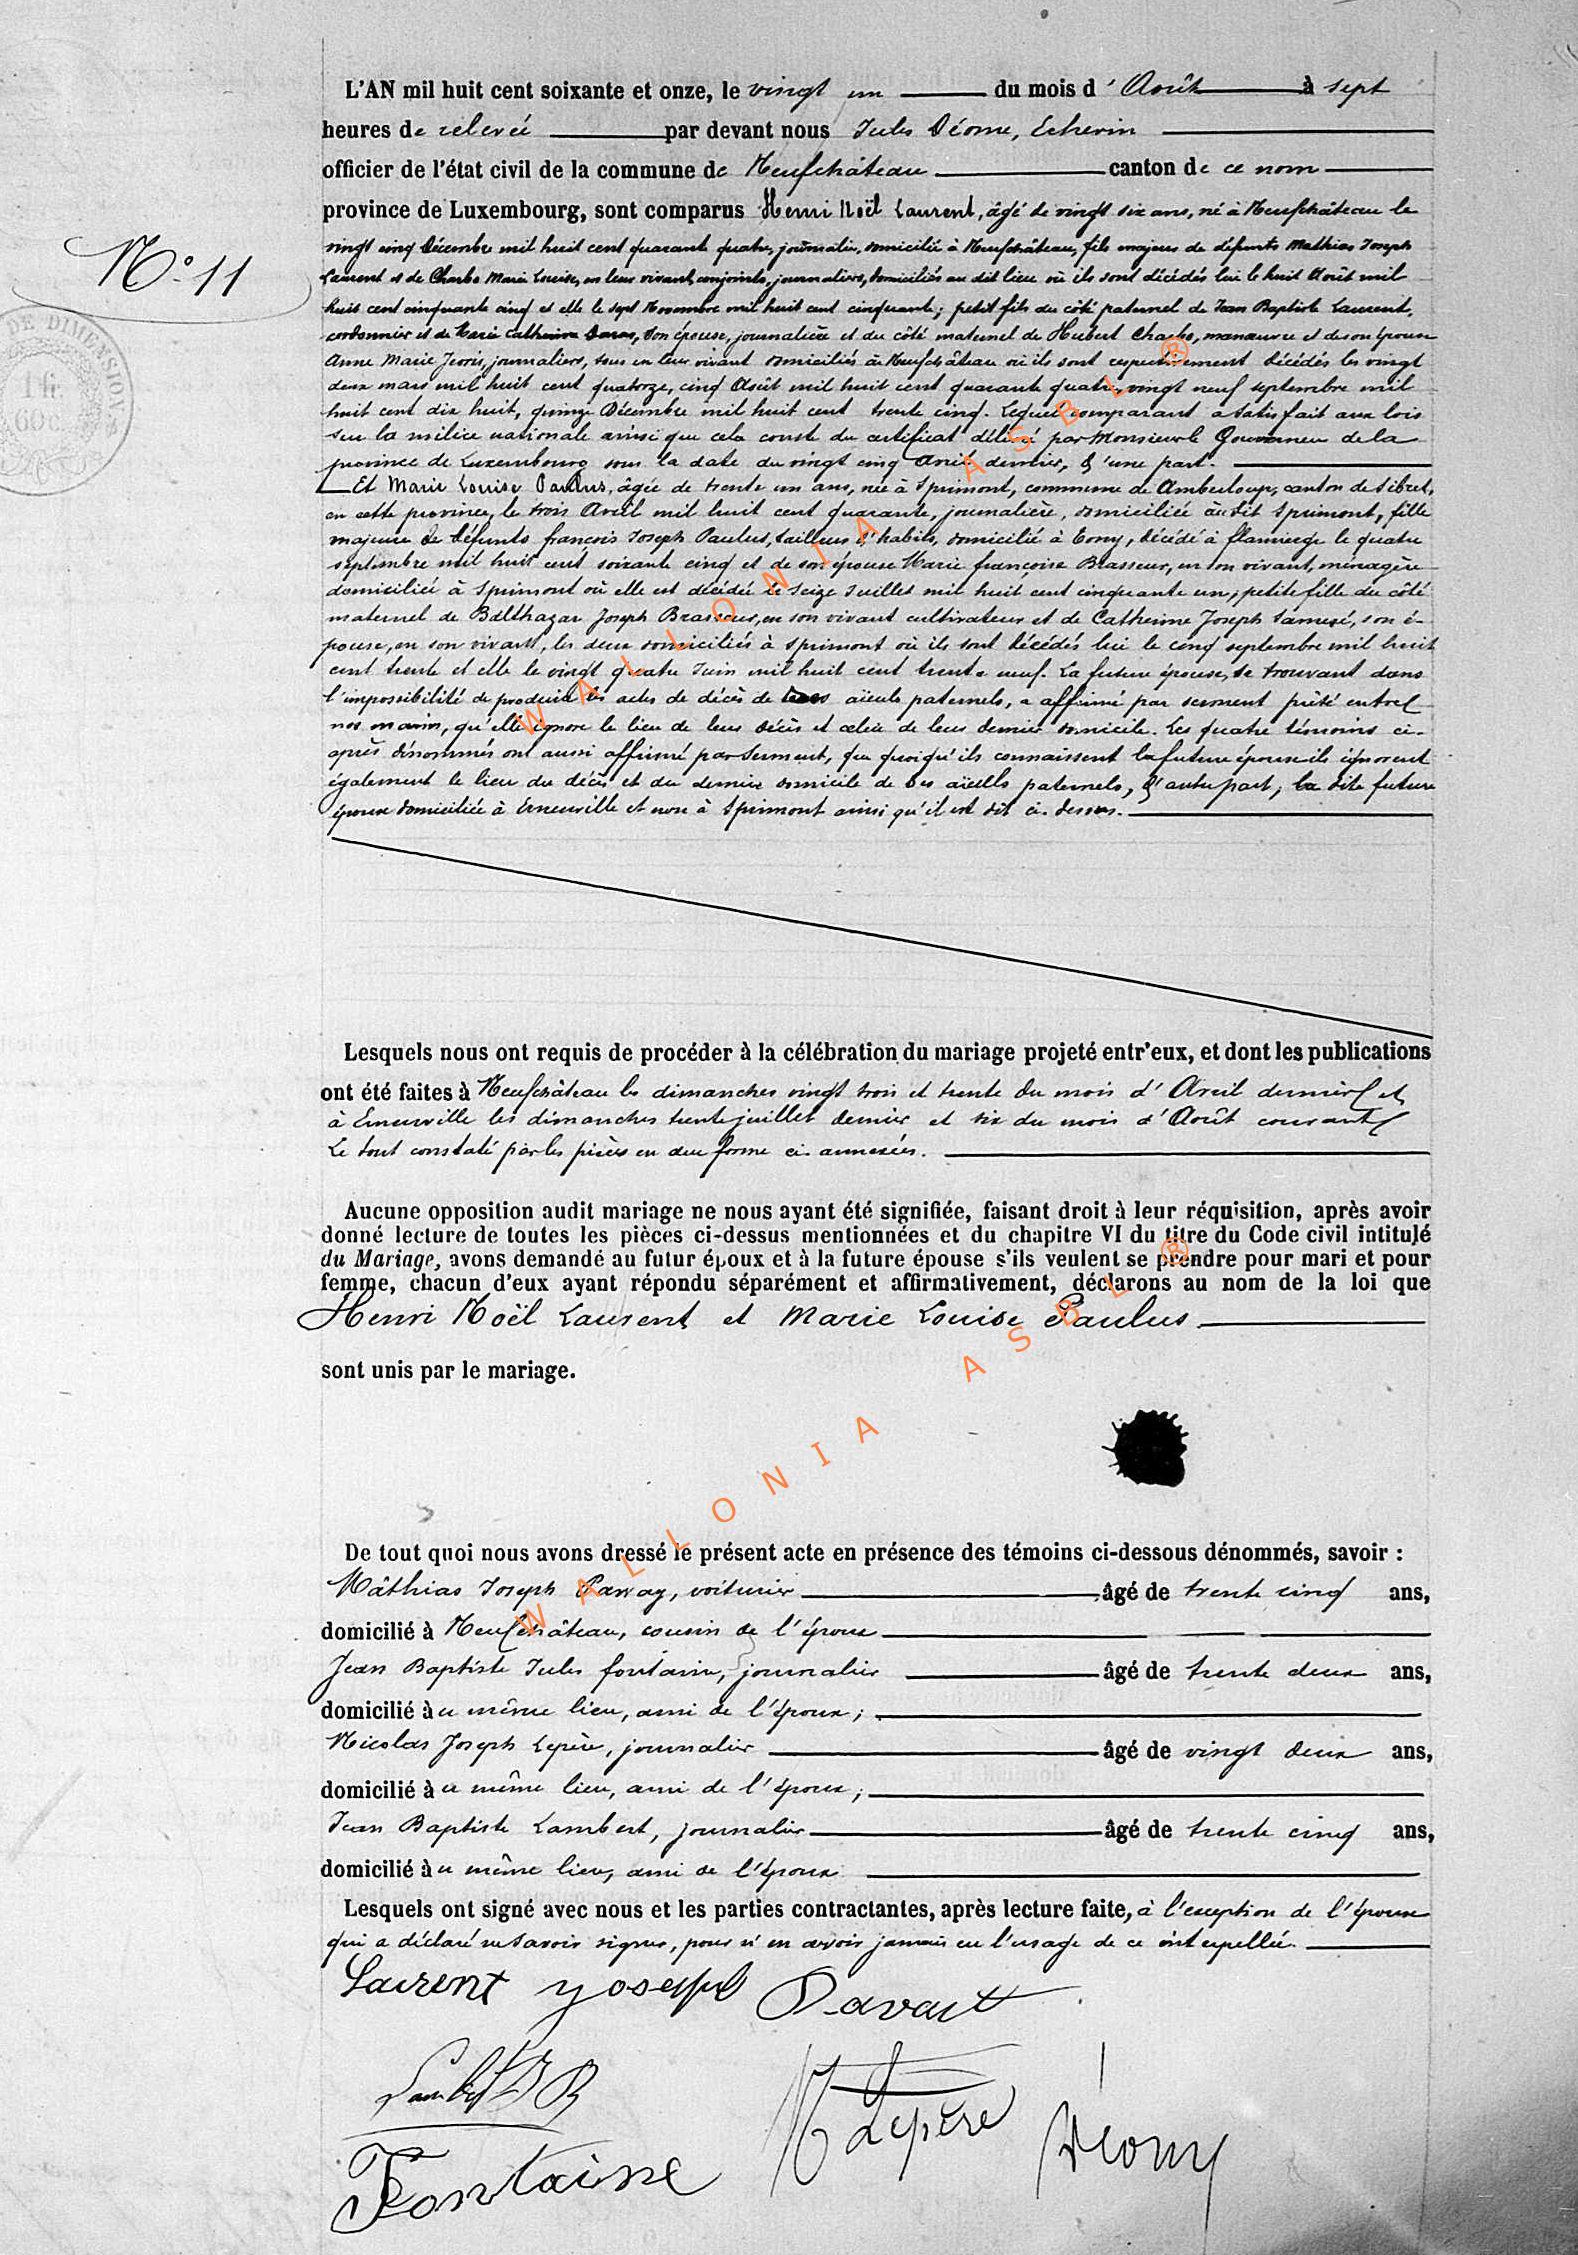 L'AN mil huit cent soixante et onze, le vingt un du mois d'Août à sept
heures de relevée par devant nous Jules Déome, Echevin
officier de l'état civil de la commune de Neufchâteau canton de ce nom
province de Luxembourg, sont comparus Henri Noël Laurent, âgé de vingt six ans, né à Neufchâteau le
vingt cinq Décembre mil huit cent quarante quatre, journalier, domicilié à Neufchâteau, fils majeur de défunts Mathias Joseph
Laurent et de Charles Marie Louise, en leur vivant, conjoints, journaliers, domiciliés au dit lieu où ils sont décédés lui le huit Août mil
huit cent cinquante cinq et elle le sept Novembre mil huit cent cinquante; petit fils du côté paternel de Jean Baptiste Laurent,
cordonnier et de Marie Catherine son épouse, journalière et du côté maternel de Hubert Charles, manœuvre et de son épouse
Anne Marie journaliers, tous en leur vivant domiciliés à Neufchâteau où ils sont respectivement décédés les vingt
deux mars mil huit cent quatorze, cinq Août mil huit cent quarante quatre, vingt neuf septembre mil
huit cent dix huit, quinze Décembre mil huit cent trente cinq. Lequel comparant a satisfait aux lois
sur la milice nationale ainsi que cela conste du certificat délivré par Monsieur le Gouverneur de la
province de Luxembourg sous la date du vingt cinq Avril dernier, d'une part.
Et Marie Louise Paulus, âgée de trente un ans, née à Sprimont, commune de Amberloup, canton de Sibret,
en cette province, le trois Avril mil huit cent quarante, journalière, domiciliée audit Sprimont, fille
majeure de défunts françois Joseph Paulus, tailleur d'habits, domicilié à Tony, décédé à flamierge le quatre
septembre mil huit cent soixante cinq et de son épouse Marie françoise Brasseur, en son vivant, ménagère
domiciliée à Sprimont où elle est décédée le seize Juillet mil huit cent cinquante un; petite fille du côté
maternel de Balthazar Joseph Brasseur, en son vivant cultivateur et de Catherine Joseph son é-
pouse, en son vivant, les deux domiciliés à Sprimont où ils sont décédés lui le cinq septembre mil huit
cent trente et elle le vingt quatre Juin mil huit cent trente neuf. La future épouse, se trouvant dans
l'impossibilité de produire les actes de décès de aïeuls paternels, a affirmé par serment prêté entre
nos mains, qu'elle ignore le lieu de leur décès et celui de leur dernier domicile. Les quatre témoins ci-
après dénommés ont aussi affirmé par serment, que quoiqu'ils connaissent la future épouse ils ignorent
également le lieu du décès et du dernier domicile de ses aïeuls paternels, d'autre part; la dite future
épouse domiciliée à Erneuville et non à Sprimont ainsi qu'il est dit ci-dessus.
N° 11
DE DIMENSION
1 fr
60 c
Lesquels nous ont requis de procéder à la célébration du mariage projeté entr'eux, et dont les publications
ont été faites à Neufchâteau les dimanches vingt trois et trente du mois d'Avril dernier et
à Erneuville les dimanches trente juillet dernier et six du mois d'Août courant
Le tout constaté par les pièces en due forme ci-annexées.
Aucune opposition audit mariage ne nous ayant été signifiée, faisant droit à leur réquisition, après avoir
donné lecture de toutes les pièces ci-dessus mentionnées et du chapitre VI du titre du Code civil intitulé
du Mariage, avons demandé au futur époux et à la future épouse s'ils veulent se prendre pour mari et pour
femme, chacun d'eux ayant répondu séparément et affirmativement, déclarons au nom de la loi que
Henri Noël Laurent et Marie Louise Paulus
sont unis par le mariage.
De tout quoi nous avons dressé le présent acte en présence des témoins ci-dessous dénommés, savoir :
Mathias Joseph voiturier âgé de trente cinq ans,
domicilié à Neufchâteau, cousin de l'époux
Jean Baptiste Jules fontaine, journalier âgé de trente deux ans,
domicilié à ce même lieu, ami de l'époux;
Nicolas Joseph Lepère, journalier âgé de vingt deux ans,
domicilié à ce même lieu, ami de l'époux;
Jean Baptiste Lambert, journalier âgé de trente cinq ans,
domicilié à ce même lieu, ami de l'époux
Lesquels ont signé avec nous et les parties contractantes, après lecture faite, à l'exception de l'épouse
qui a déclaré ne savoir signer, pour n'en avoir jamais eu l'usage de ce interpellée.
Laurent yoseph
Lambert J B
N Lepère
Déome
Fontaine
WALLONIA ASBL ®
WALLONIA ASBL ®